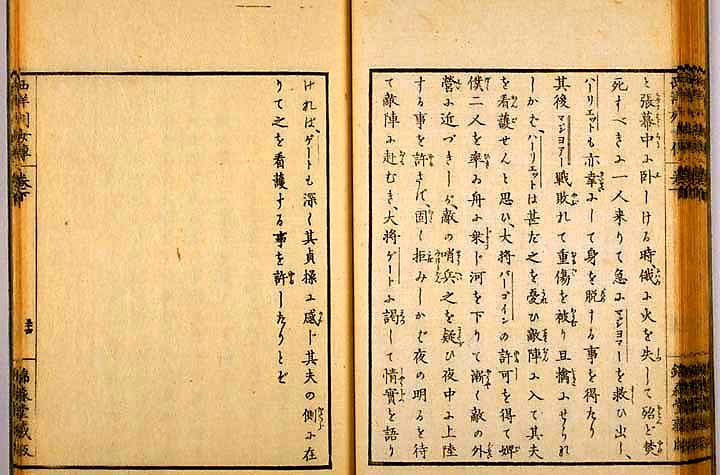 と張幕中に臥しける時俄に火を失して殆ど焚
死すべきに一人来りて急にマジヨアーを救ひ出し、
ハーリエットも亦幸にして身を脱する事を得たり
其後マジヨアー戦敗れて重傷を被り且擒にせられ
しかば、ハーリエットは甚だ之を憂ひ敵陣に入て其夫
を看護せんと思ひ、大将バーゴインの許可を得て婢
僕二人を率ゐ舟に乗じ河を下りて漸く敵の外
営に近づきしが、敵の哨兵之を疑ひ夜中に上陸
する事を許さず、固く拒みしかば夜の明るを待
て敵陣に赴むき、大将ゲートに謁して情實を語り
ければ、ゲートも深く其貞操に感じ其夫の側に在
りて之を看護する事を許したりとぞ
西洋列女傳 巻下
錦森堂蔵版